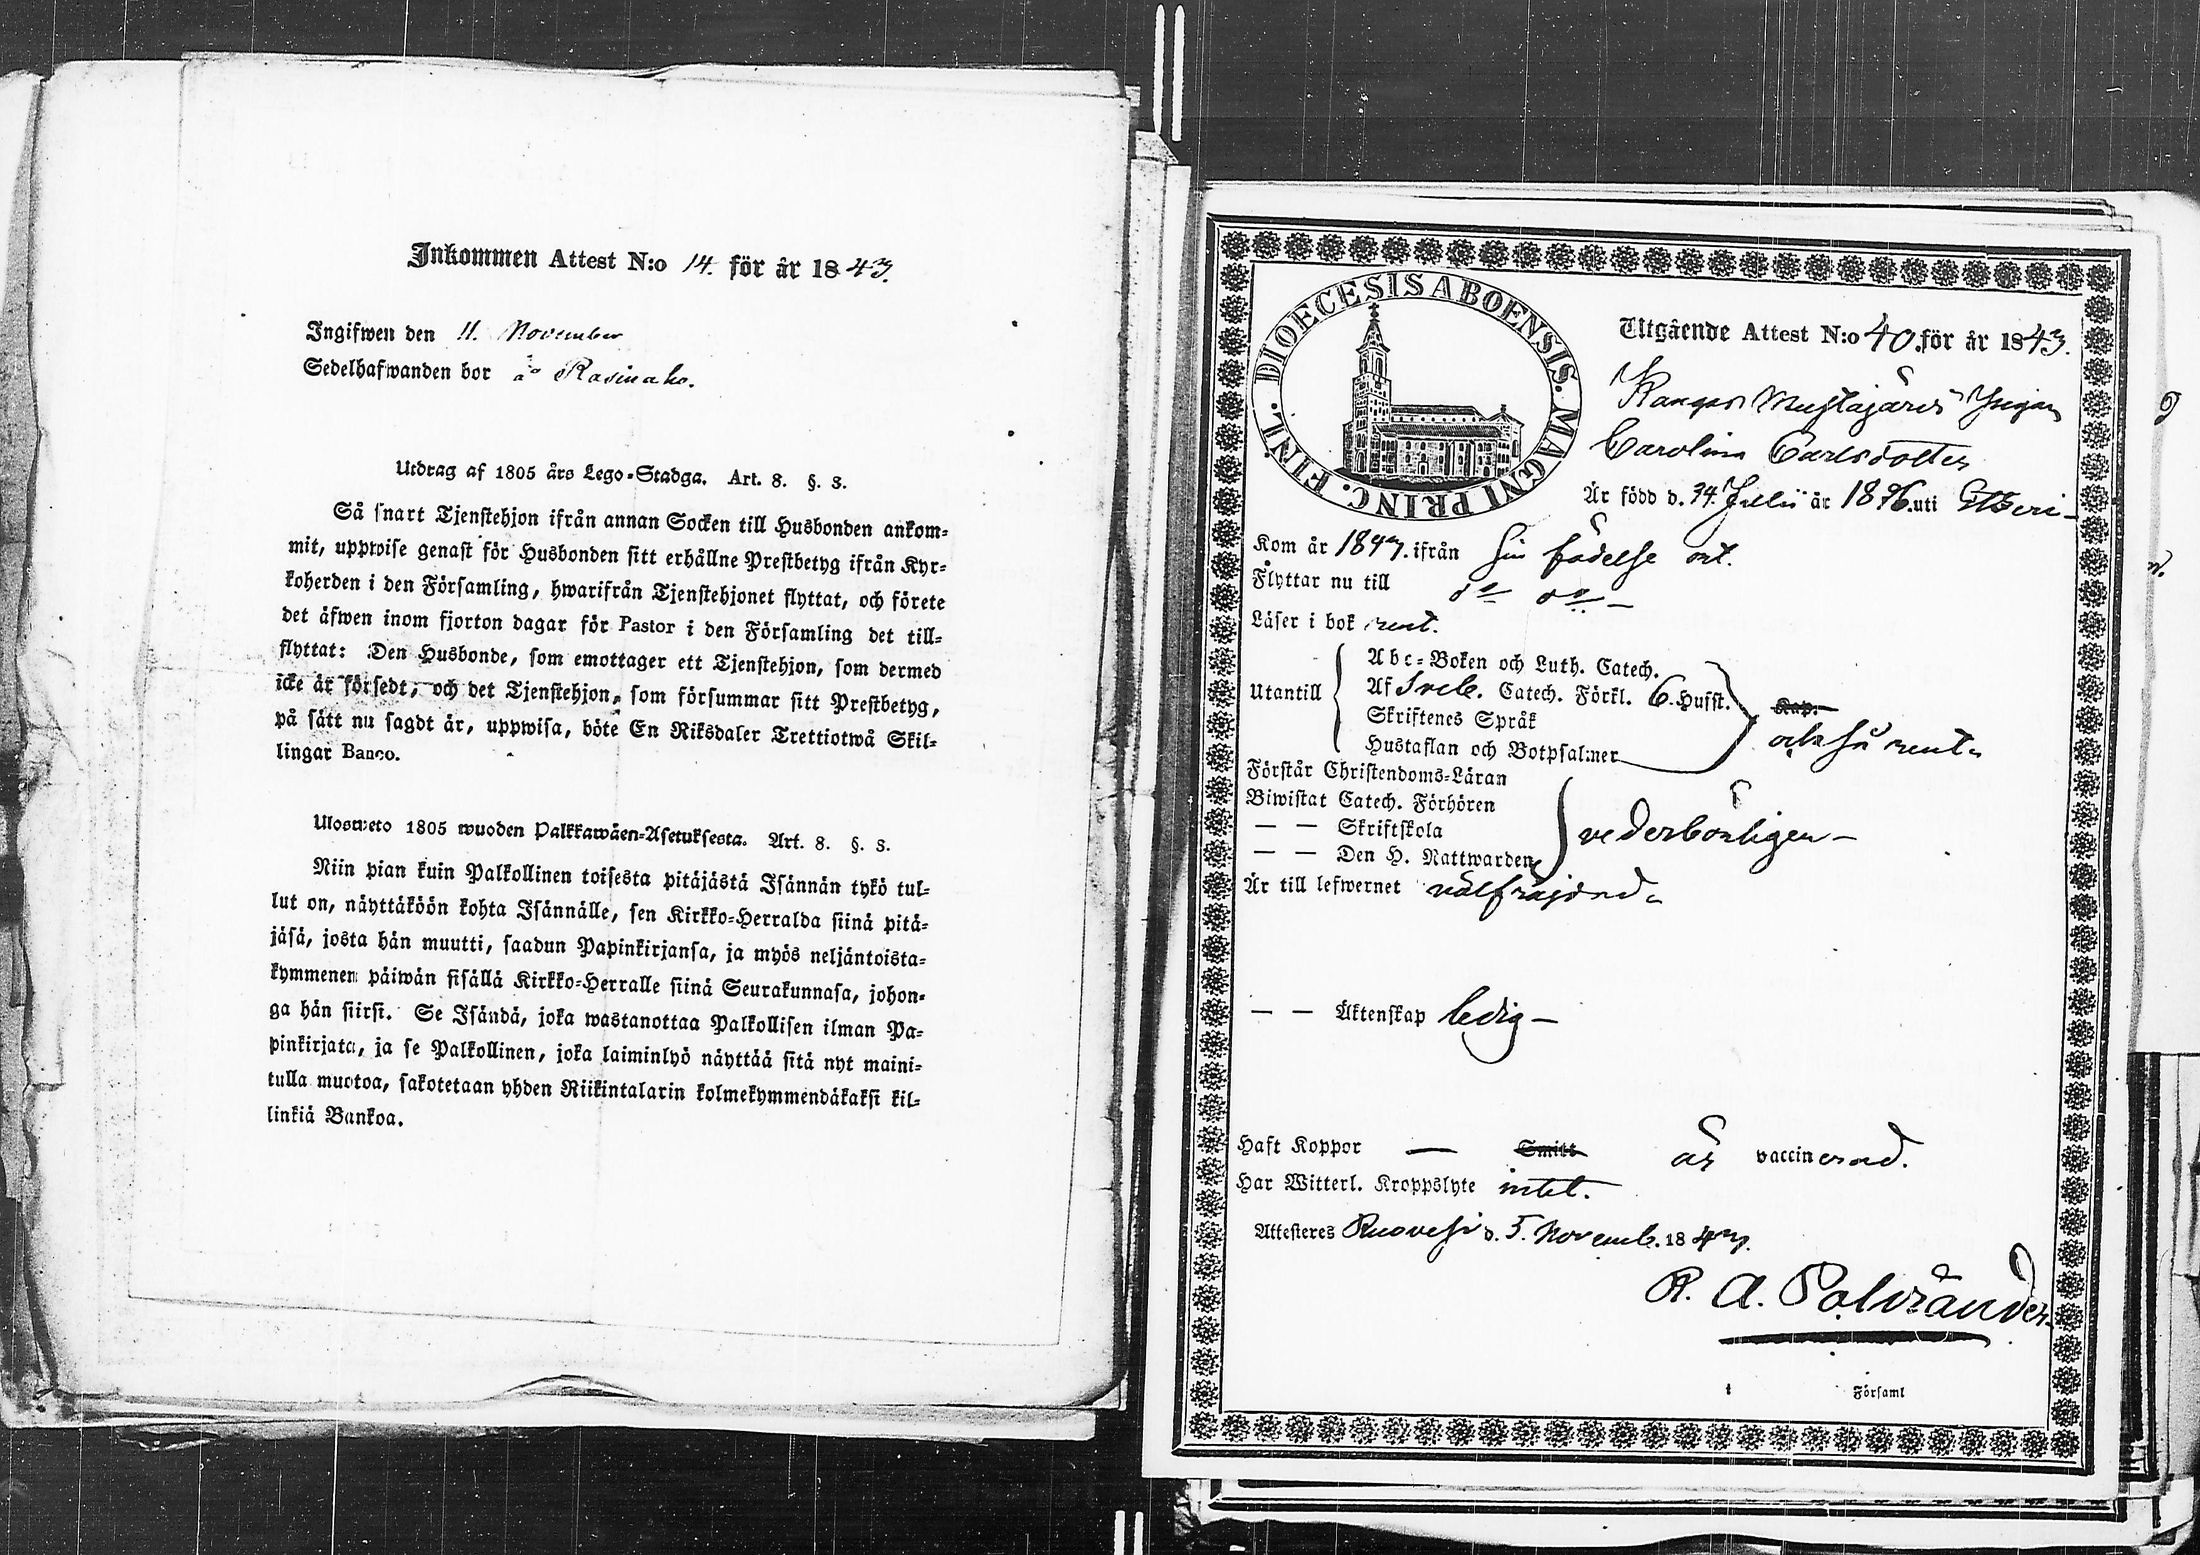 Inkommen Attest N:o 14. för år 1843.
Ingifwen den 11. November
Sedelhafwanden bor å Rasinaho.
Utdrag af 1805 års Lego-Stadga. Art. 8. §. 3.
Så snart Tjenstehjon ifrån annan Socken till Husbonden ankom-
mit, uppwise genast för Husbonden sitt erhållne Prestbetyg ifrån Kyr-
koherden i den Församling, hwarifrån Tjenstehjonet flyttat, och förete
det äfwen inom fjorton dagar för Pastor i den Församling det till-
flyttat: Den Husbonde, som emottager ett Tjenstehjon, som dermed
icke är försedt, och det Tjenstehjon, som försummar sitt Prestbetyg,
på sätt nu sagdt är, uppwisa, böte En Riksdaler Trettiotwå Skil-
lingar Banco.
Ulosweto 1805 wuoden Palkkawäen-Asetuksesta. Art. 8. §. 3.
Niin pian kuin Palkollinen toisesta pitäjästä Isännän tykö tul-
lut on, näyttäköön kohta Isännälle, sen Kirkko-Herralda siinä pitä-
jäsä, josta hän muutti, saadun Papinkirjansa, ja myös neljäntoista-
kymmenen päiwän sisällä Kirkko-Herralle siinä Seurakunnasa, johon-
ga hän siirsi. Se Isändä, joka wastanottaa Palkollisen ilman Pa-
pinkirjata, ja se Palkollinen, joka laiminlyö näyttää sitä nyt maini-
tulla muotoa, sakotetaan yhden Riikintalarin kolmekymmendäkaksi kil-
linkiä Bankoa.
DIOECESIS ABOENSIS. MAGNI PRINC. FINL.
Utgående Attest N:o 40. för år 1843.
Pigan
Carolina Carlsdotter
Är född d. 24. Julii år 18 uti Etseri
Kom år 1843. ifrån sin födelse ort.
Flyttar nu till do do
Läser i bok rent.
Utantill
Abc-Boken och Luth. Catech.
Af Sveb. Catech. Förkl. 6. Hufst. Kap.
Skriftenes Språk
Hustaflan och Botpsalmer
också rent
Förstår Christendoms-Läran
Biwistat Catech. Förhören
— — Skriftskola
— — Den H. Nattwarden
vederbörligen
Är till lefwernet välfräjdad
— — Äktenskap ledig
Haft Koppor — Smitt är vaccinerad.
Har Witterl. Kroppslyte intet.
Attesteres Ruovesi d. 5. Novemb. 1843.
R. A. Polviander
i Församl